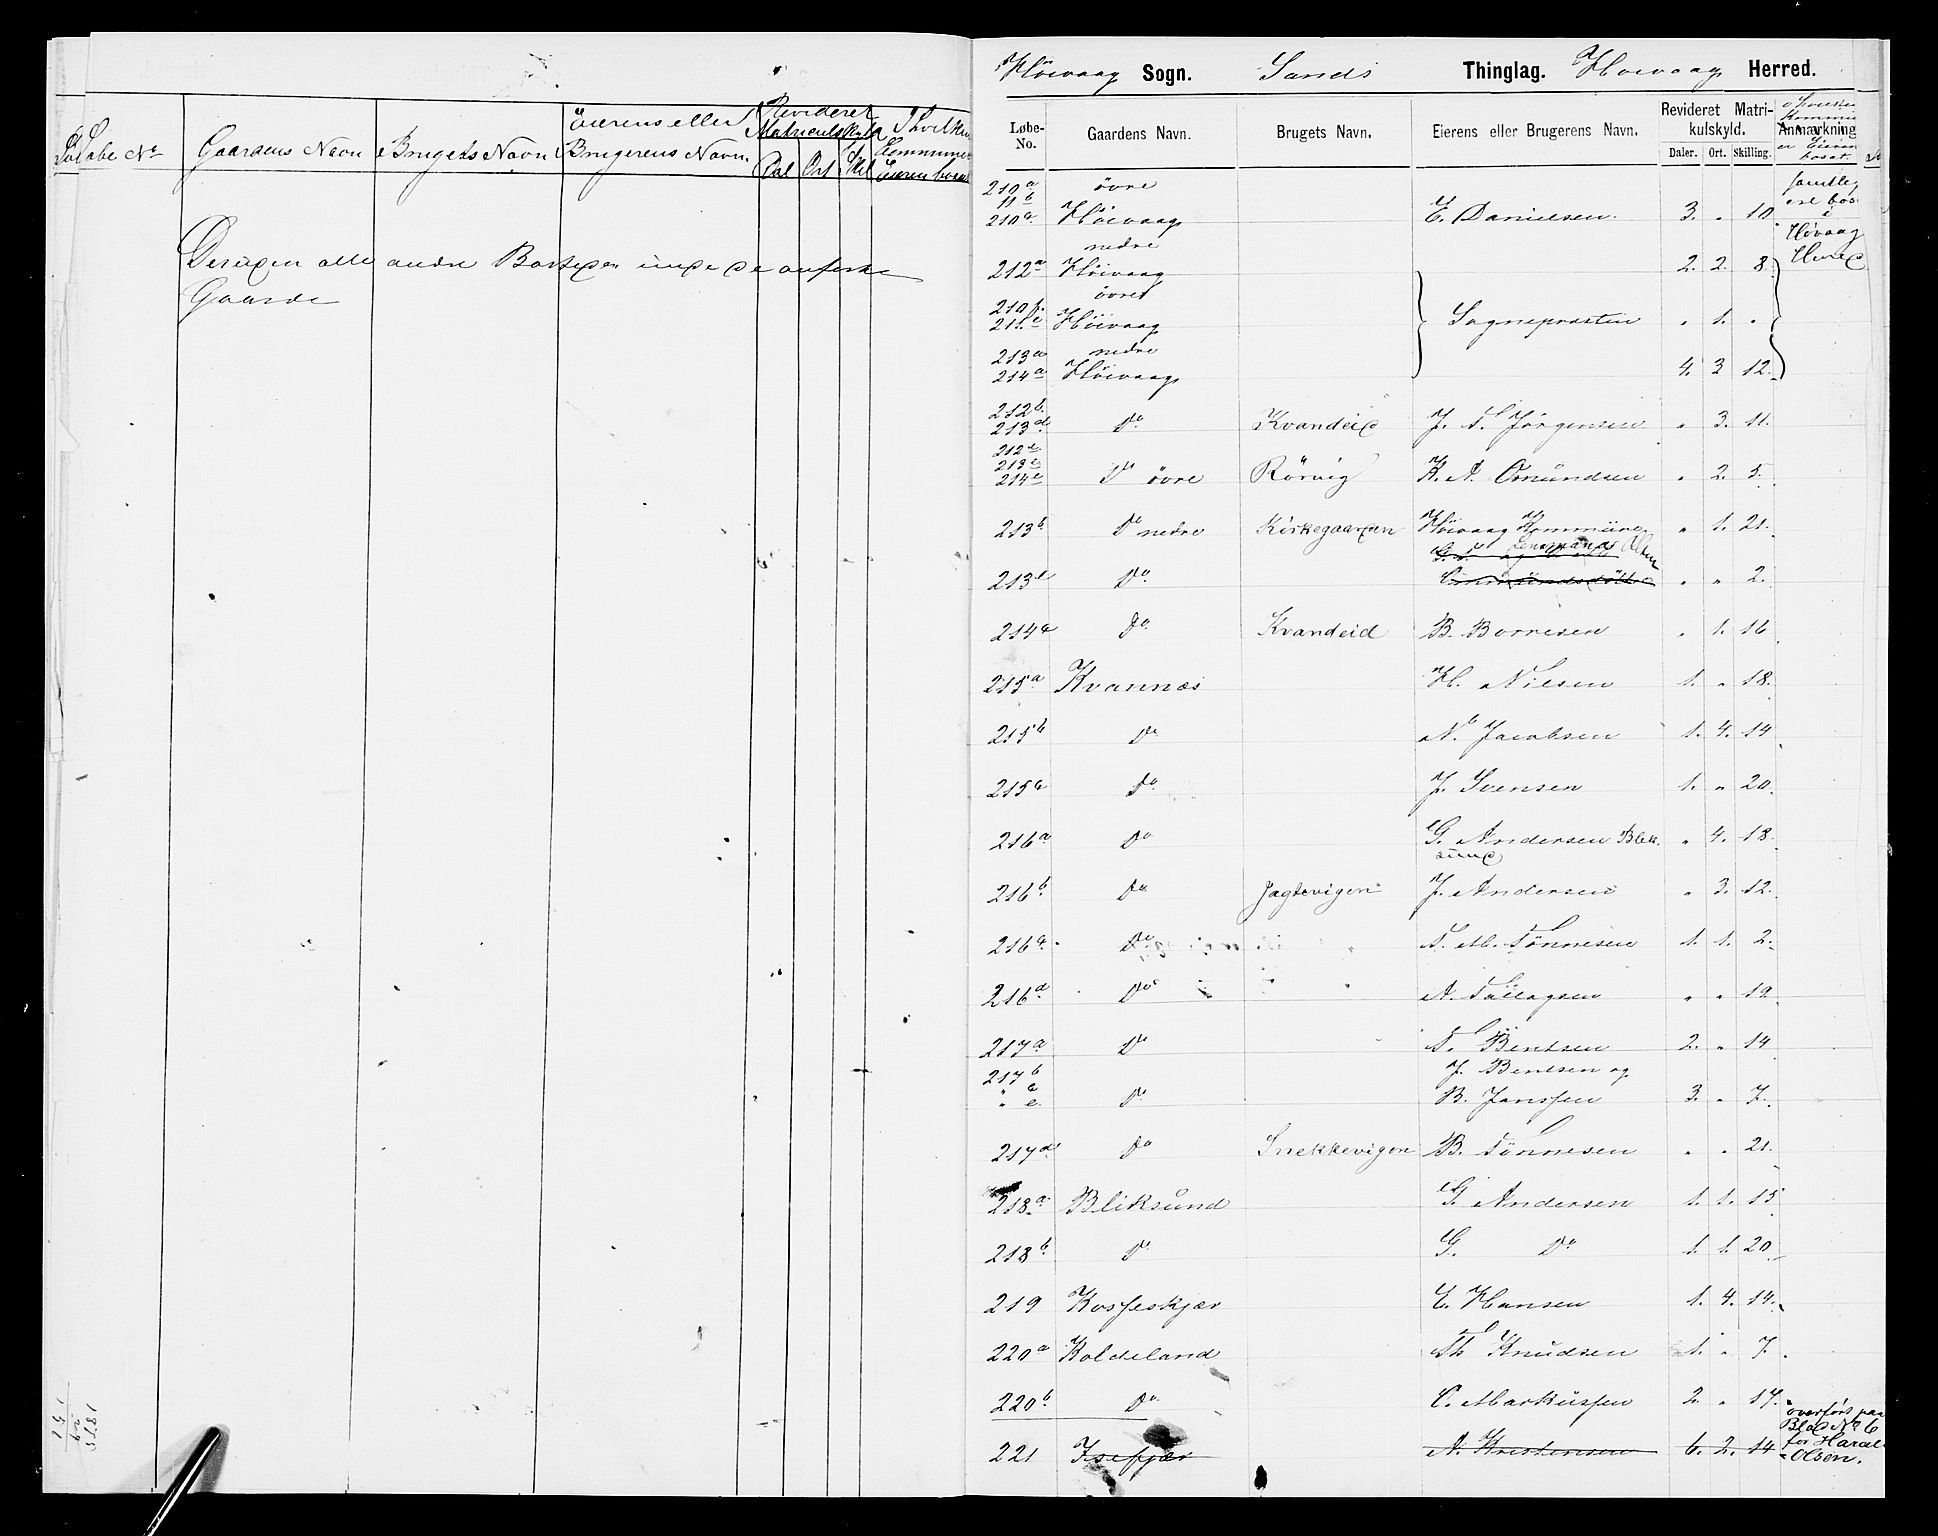 Løbe No Gaardens Navn Brugets Navn Eierens eller Brugerens Navn Revideret Matriculskyld Dal Ort Skil I hvilken Kommune Eieren boer
Gaarde
Høievaag Sogn. Sands Thinglag. Høievaag Herred.
Løbe-No. Gaardens Navn. Brugets Navn. Eierens eller Brugerens Navn. Revideret Matrikulskyld. Anmærkning
Daler. Ort. Skilling.
210a øvre
11b
210a Høievaag E. Danielsen. 3. " 10
i Høvaag Hered
nedre
212a Høievaag 2. 2. 8.
øvre
211c Høievaag Sognepræsten " 1. "
213a nedre
214a Høievaag 4. 3 12.
212b.
213d Do Kvandeid J. T. Jörgensen " 3. 11.
212e
213c
214c Do øvre Rörvig K. A. Omundsen " 2. 5.
213b Do nedre Kirkegaarden Høievaag Kommune " 1. 21.
213e Do " " 2.
214b Do Kvandeid B. Borresen " 1. 16
215a Kvannæs H. Nilsen 1. " 18.
215b Do N. Jacobsen 1. 4. 14
215c Do J. Svensen 1. " 20.
216a Do G. Andersen Blek
sund " 4. 18.
216b Do Jagtevigen J. Andersen " 3. 12.
216c Do T. M. Tönnesen 1. 1. 2.
216d Do A. Tallagsen " " 19.
217a Do T. Bentsen 2. " 14
217b J. Bentsen og
" c. Do B. Janssen 3. " 7.
217d Do Snekkevigen B. Tönnesen " " 21.
218a Bliksund G. Andersen 1. 1. 15
218b Do G. Do 1. 1. 20
219 Kosseskjær E. Hansen 1. 4. 14.
220a Koldeland Th Knudsen 1. " 7.
220b Do C. Markussen 2. " 17.
overført paa
Blad No 6
for Haral
Olsen.
221 Isefjær N. Kristensen 6. 2. 14